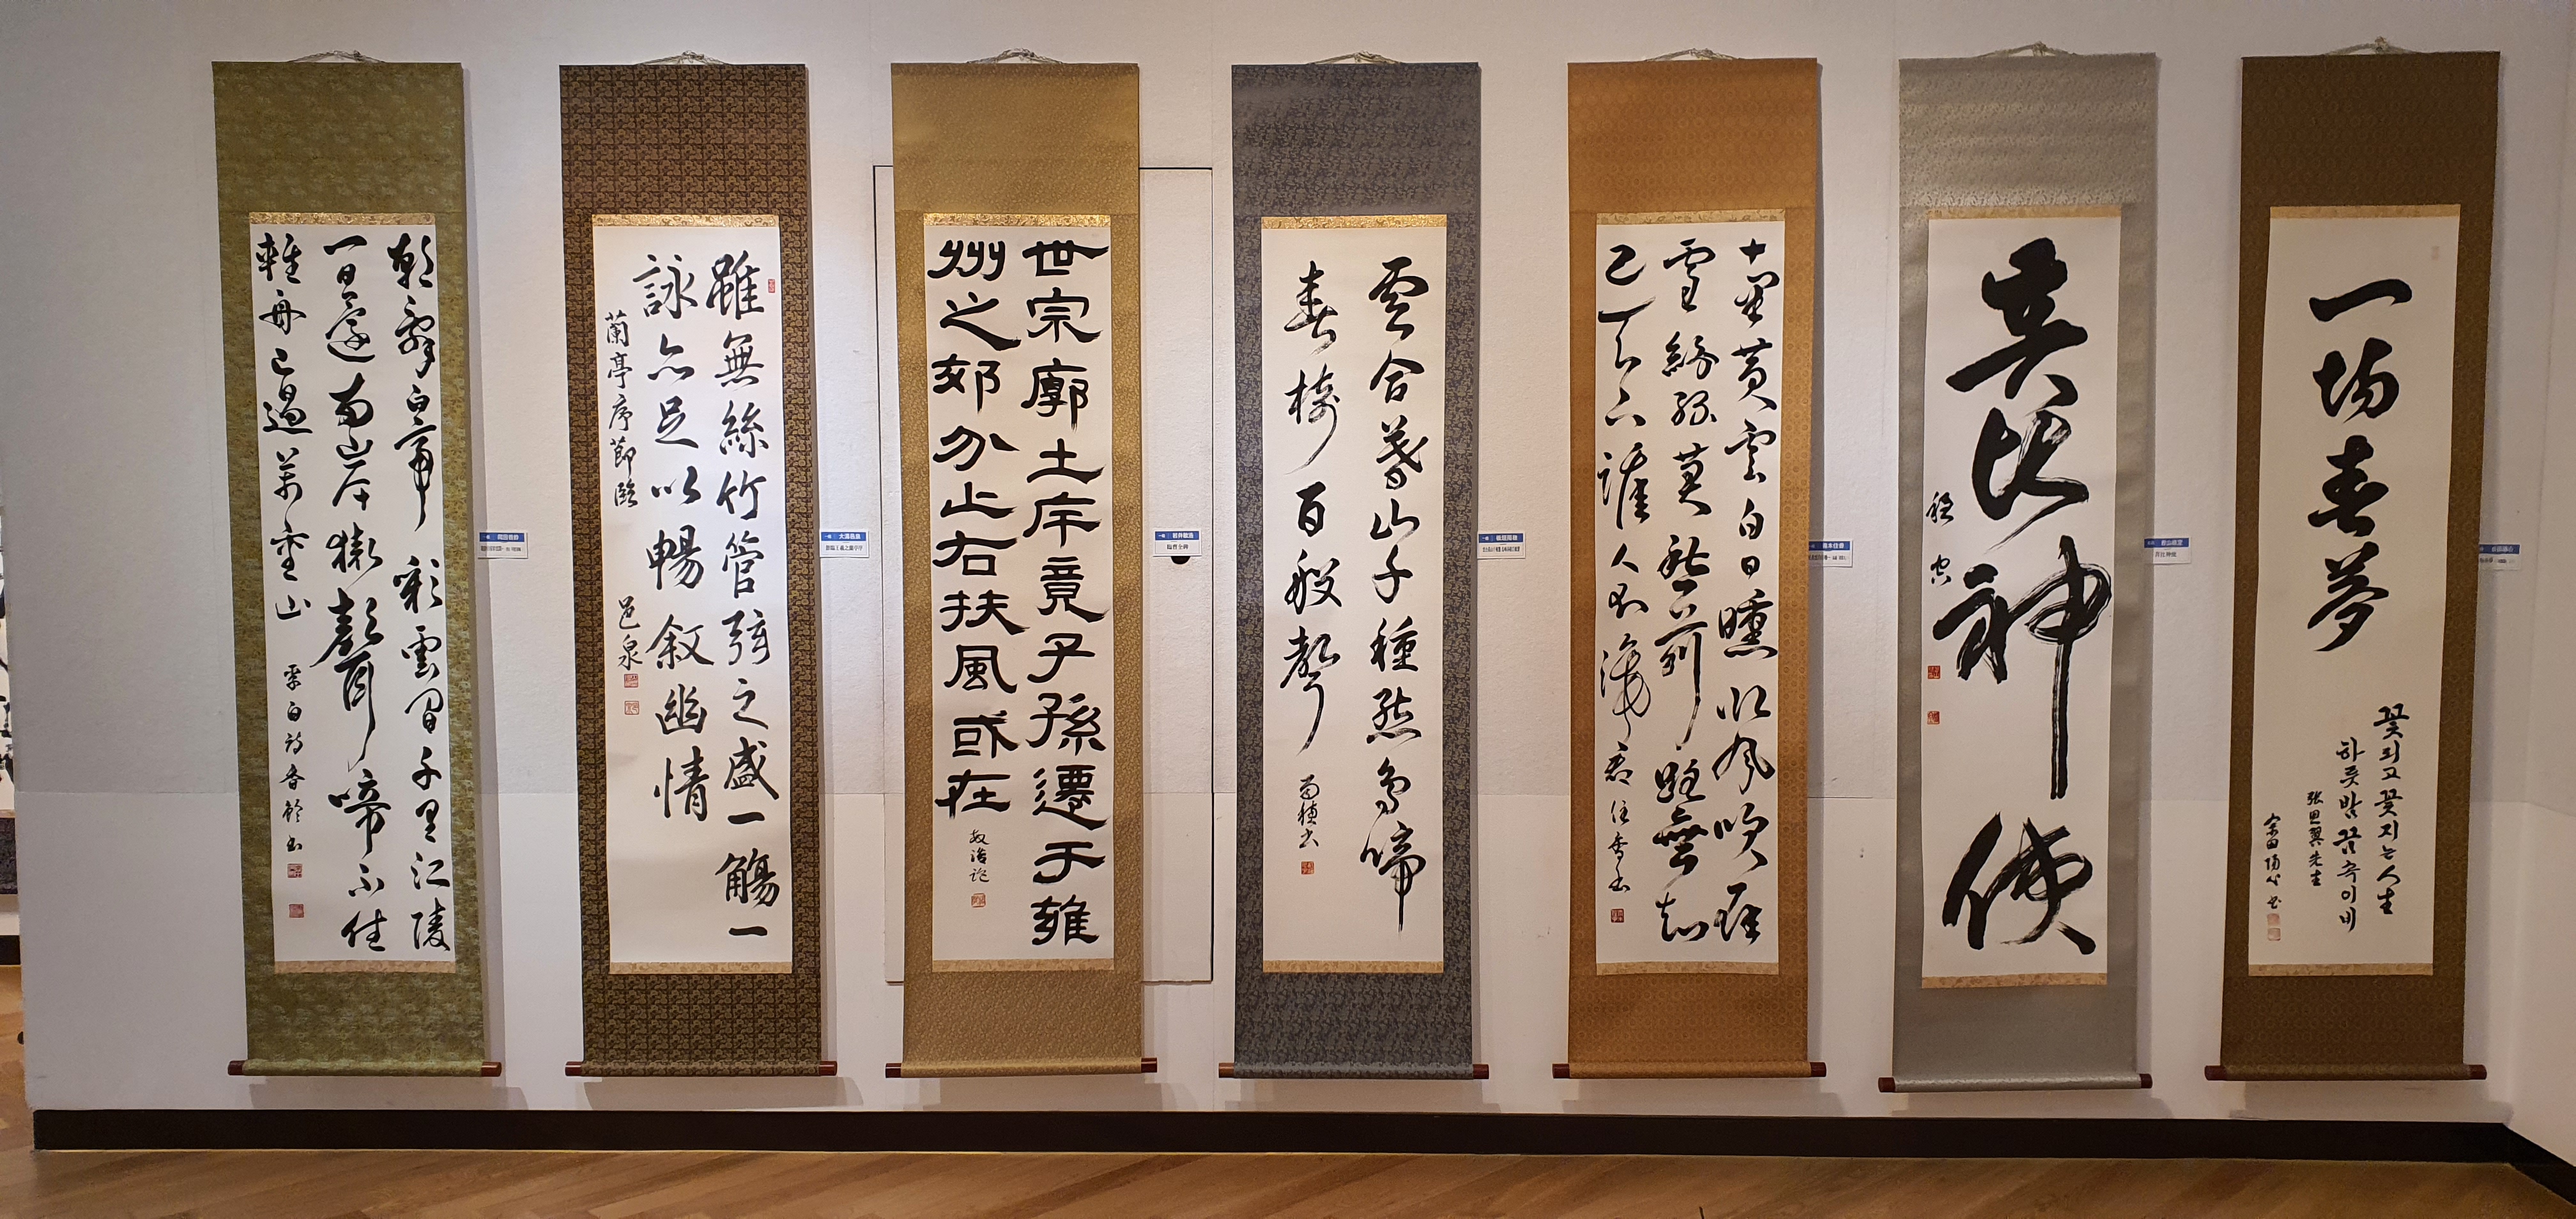 一場春夢
꽃피고꽃지는人生
하룻밤꿈속이
張思翼先生
比神使
十里黄雲白日曛北風吹雁
雪紛紛莫愁前路無知
己天下誰人不識君 香書
雲合暮山千種態鳥啼
春樹百般聲 雨穂書
世宗廓土斥竟子孫遷于雍
州之郊分止右扶風或在 敏治臨
雖無絲竹管弦之盛一觴一
詠亦足以暢叙幽情
蘭亭序節臨 邑泉
朝辭白帝彩雲間千里江陵
一日還両岸猿聲啼不住
軽舟已過萬重山 李白詩 香鈴書